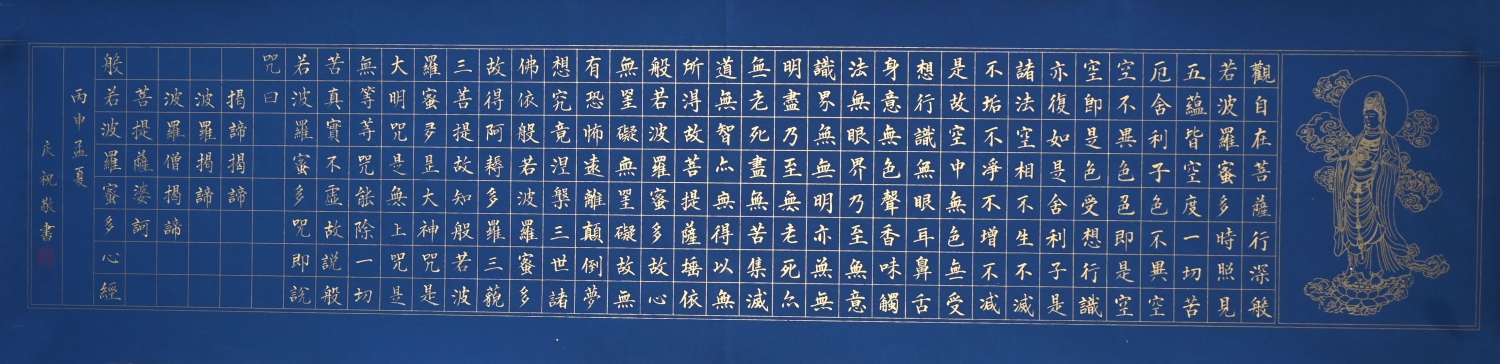 觀自在菩薩行深般
若波羅蜜多時照見
五蘊皆空度一切苦
厄舍利子色不異空
空不異色色即是空
空即是色受想行識
亦復如是舍利子是
諸法空相不生不滅
不垢不淨不增不減
是故空中無色無受
想行識無眼耳鼻舌
身意無色聲香味觸
法無眼界乃至無意
識界無無明亦無無
明盡乃至無老死亦
無老死盡無苦集滅
道無智亦無得以無
所得故菩提薩埵依
般若波羅蜜多故心
無罣礙無罣礙故無
有恐怖遠離顛倒夢
想究竟涅槃三世諸
佛依般若波羅蜜多
故得阿耨多羅三藐
三菩提故知般若波
羅蜜多是大神咒是
大明咒是無上咒是
無等等咒能除一切
苦真實不虛故說般
若波羅蜜多咒即說
咒曰
揭諦揭諦
波羅揭諦
波羅僧揭諦
菩提薩婆訶
般若波羅蜜多心經
丙申孟夏
祝敬書